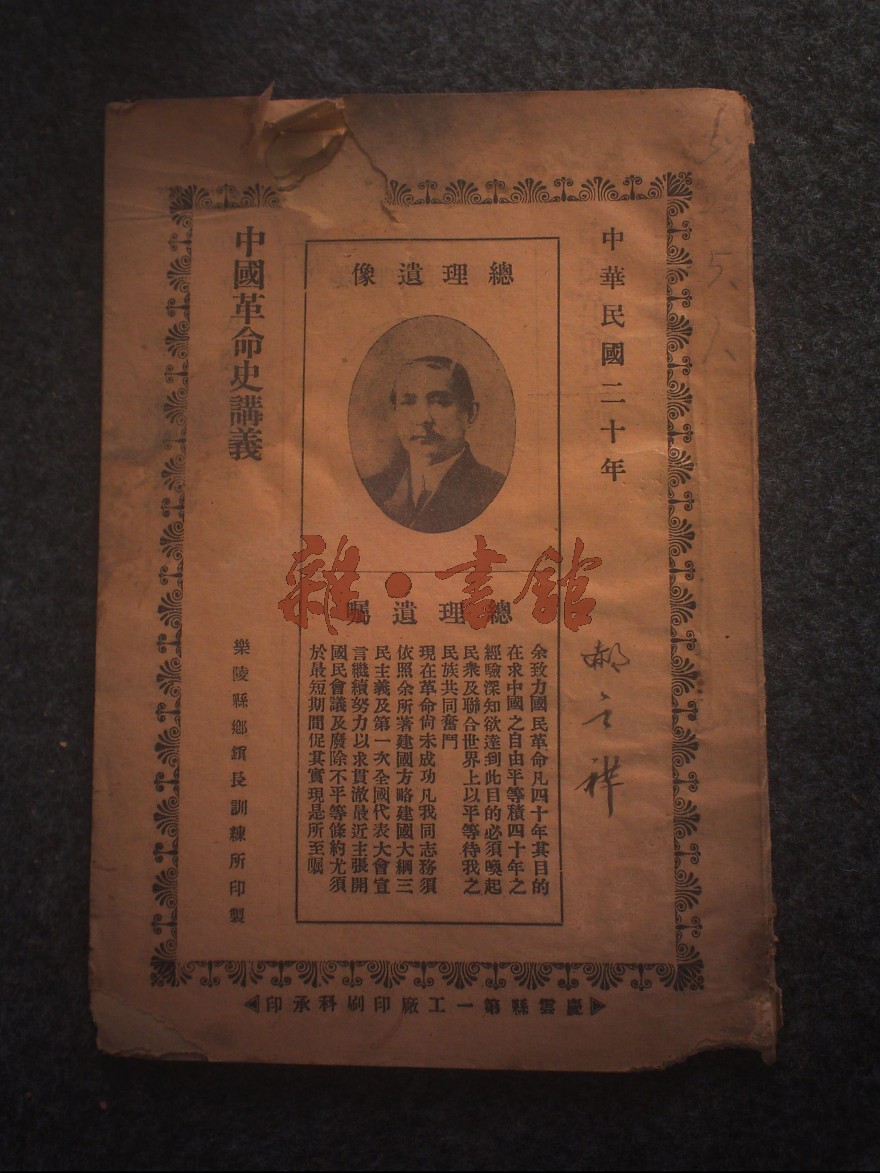 中華民國二十年
總理遺像
總理遺囑
余致力國民革命凡四十年其目的
在求中國之自由平等積四十年之
經驗深知欲達到此目的必須喚起
民衆及聯合世界上以平等待我之
民族共同奮鬥
現在革命尙未成功凡我同志務須
依照余所著建國方略建國大綱三
民主義及第一次全國代表大會宣
言繼續努力以求貫澈最近主張開
國民會議及廢除不平等條約尤須
於最短期間促其實現是所至囑
中國革命史講義
樂陵縣鄉鎮長訓練所印製
慶雲縣第一工廠印刷科承印
雜·書館